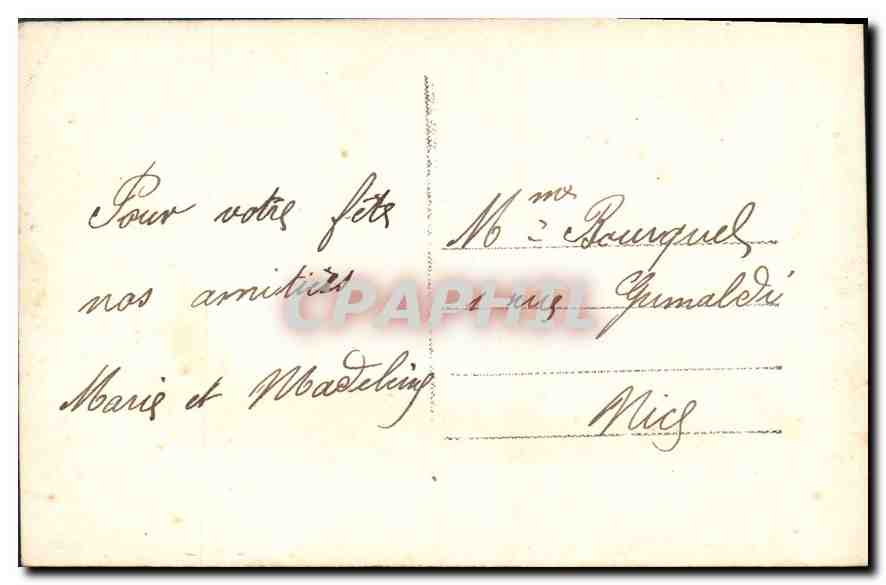 Pour votre fête
nos amitiés
Marie et Madeleine
Mme Bourquel
1 rue Grimaldi
Nice
CPAPHIL